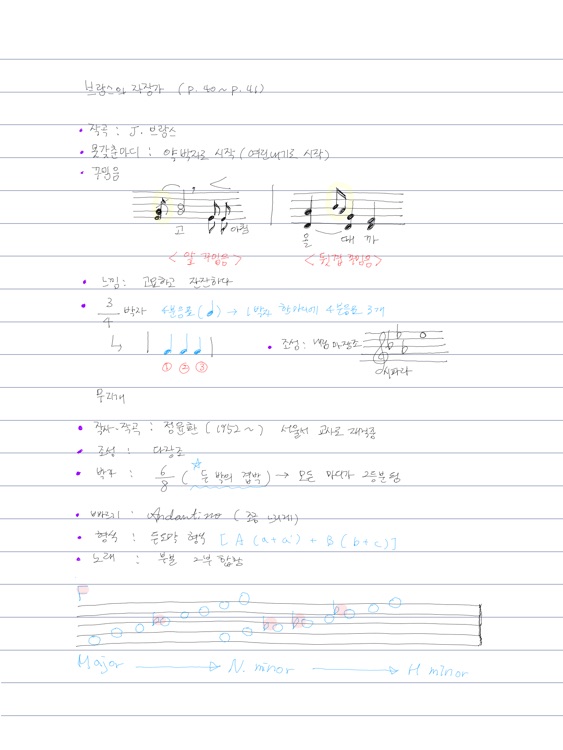 브람스의 자장가 (p.40~p.41)
• 작곡 : J. 브람스
• 못갖춘마디 : 약박자로 시작 (여린내기로 시작)
• 꾸밈음
고 아침
을 때 까
<앞 꾸밈음> <뒷 겹 꾸밈음>
• 느낌: 고요하고 잔잔하다
• 3/4 박자 4분음표(♩) → 1박자 한마디에 4분음표 3개
↳ | ♩ ♩ ♩ | • 조성: 내림 마장조
① ② ③ 시파라
무지개
• 작사·작곡 : 정윤환 (1952~) 선율서 교사로 재직중
• 조성 : 다장조
• 박자 : 6/8 (두 박의 겹박) → 모든 마디가 2등분됨
• 빠르기 : Andantino (조금 느리게)
• 형식 : 두도막 형식 [A (a+a') + B (b+c)]
• 노래 : 부분 2부 합창
F
Major → N. minor → H minor